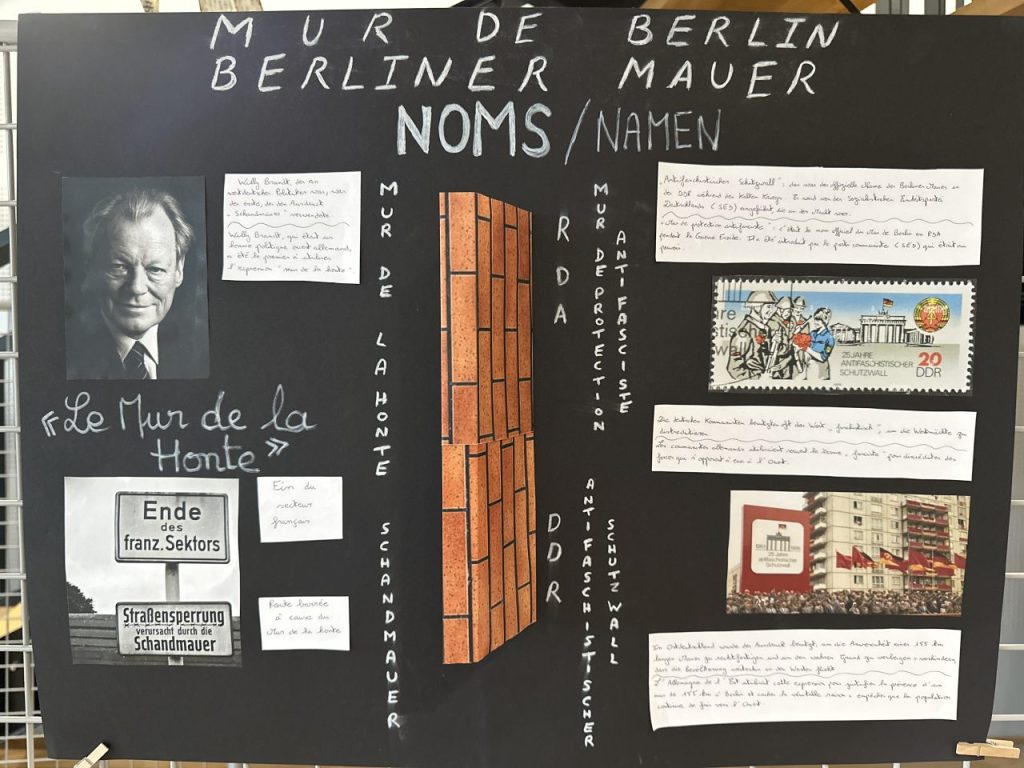 MUR DE BERLIN
BERLINER MAUER
NOMS / NAMEN
Willy Brandt, der ein
westdeutscher Politiker war, war
der erste, der den Ausdruck
"Schandmauer" verwendete.
Willy Brandt, qui était un
homme politique ouest allemand,
a été le premier à utiliser
l'expression "mur de la honte".
«Le Mur de la
Honte»
Ende
des
franz. Sektors
Straßensperrung
verursacht durch die
Schandmauer
du
secteur
français
Route barrée
à cause du
Mur de la honte
MUR DE LA HONTE SCHANDMAUER
RDA
DDR
MUR DE PROTECTION
ANTIFASCISTE
ANTIFASCHISTISCHER
SCHUTZWALL
"Antifaschistischer Schutzwall": das war der offizielle Name der Berliner Mauer in
der DDR während des Kalten Kriegs. Er wurde von der Sozialistischen Einheitspartei
Deutschlands (SED) eingeführt, die an der Macht war.
"Mur de protection antifasciste": c'était le nom officiel du Mur de Berlin en RDA
pendant la Guerre Froide. Il a été introduit par le parti communiste (SED) qui était au
pouvoir.
25 JAHRE
ANTIFASCHISTISCHER
SCHUTZWALL
20
DDR
Die deutschen Kommunisten benutzten oft das Wort "faschistisch", um die Westmächte zu
diskreditieren.
Les communistes allemands utilisaient souvent le terme "fasciste" pour discréditer les
forces qui s'opposent à eux à l'Ouest.
25 Jahre
antifaschistischer
Schutzwall
In Ostdeutschland wurde der Ausdruck benutzt, um die Anwesenheit einer 155 km
langen Mauer zu rechtfertigen und um den wahren Grund zu verbergen: verhindern,
dass die Bevölkerung weiterhin in den Westen flieht.
L'Allemagne de l'Est utilisait cette expression pour justifier la présence d'un
mur de 155 km à Berlin et cacher la véritable raison: empêcher que la population
continue de fuir vers l'Ouest.